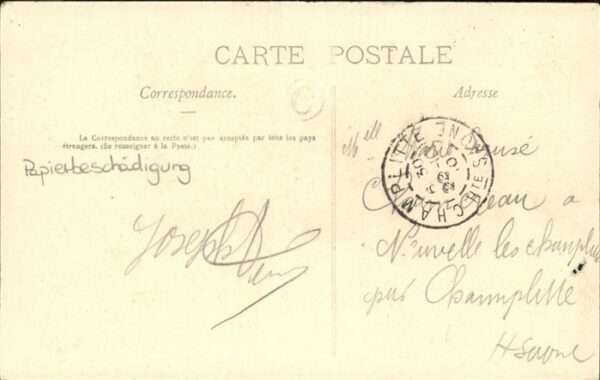 CARTE POSTALE
Correspondance.
Adresse
La Correspondance au recto n'est pas acceptée par tous les pays
étrangers. (Se renseigner à la Poste.)
Papierbeschädigung
Joseph
CHAMPLITTE
HTE SAONE
Mell
à
Neuvelle les champlitte
par Champlitte
H Saone